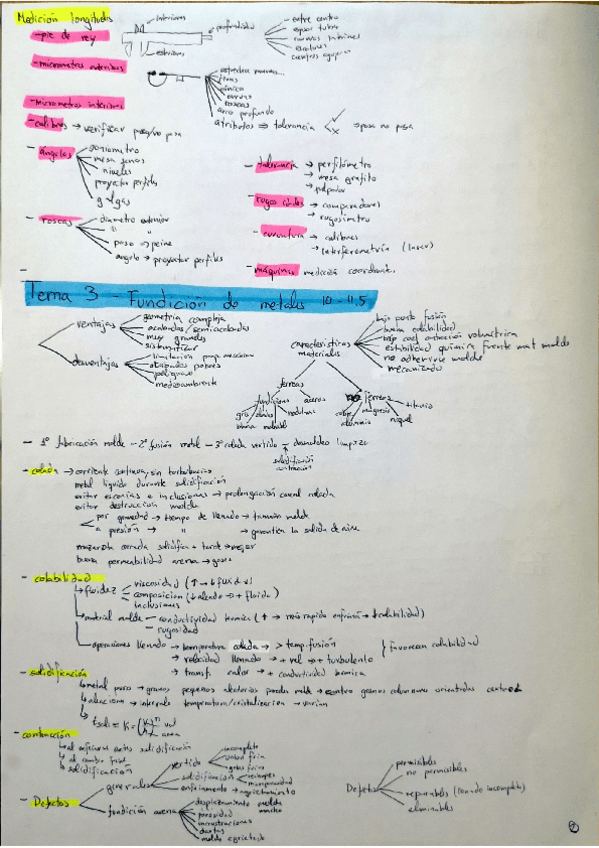 Medición longitudes
- pie de rey
interiores
profundidad
exteriores
- entre centro
- espesor tubos
- escalones
- micrometros exteriores
- conico
- curvas
- roscas
arco profundo
atributos ⇒ tolerancia ⇒ pasa no pasa
- micrometros interiores
- calibres → verificar pasa/no pasa
- ángulos
goniometro
mesa senos
niveles
proyector perfiles
galgas
- roscas
diametro exterior
" "
paso ⇒ peine
angulo → proyector perfiles
- tolerancia → perfilómetro
→ mesa grafito
→ palpador
→ comparadores
→ rugosimetro
- curvatura → calibres
→ interferometría (laser)
- máquinas medición coordenat.
Tema 3 - Fundición de metales 10-11,5
ventajas
geometria compleja
acabadas/semiacabadas
muy grandes
desventajas
limitacion prop. mecanicas
acabados pobres
peligroso
medioambiente
características materiales
bajo punto fusión
buena colabilidad
bajo coef contracción volumétrica
estabilidad quimica frente mat molde
no adherirse molde
mecanizado
ferreas
fundiciones
aceros
gris
nodulares
maleable
no férreas
cobre
aluminio
magnesio
niquel
titanio
- 1º fabricación molde - 2º fusión metal - 3º colada vertido - desmoldeo limpieza
solidificación
contracción
- colada → corriente continua, sin turbulencias
metal liquido durante solidificación
evitar escorias e inclusiones → prolongación canal colada
evitar destruccion molde
por gravedad → tiempo de llenado → tamaño molde
a presión → " → garantiza la salida de aire
mazarota cerrada solidifica + tarde → mejor
buena permeabilidad arena → gases
- colabilidad
fluidez
viscosidad (↑ → ↓ fluidez)
composicion (↓ aleado → + fluido)
inclusiones
material molde - conductividad termica (↑ → más rapido enfrian → ↓ colabilidad)
- rugosidad
operaciones llenado → temperatura colada → > temp. fusión
→ velocidad llenado → + vel → + turbulento
→ transf. calor → + conductividad termica
} favorecen colabilidad
- solidificación
metal puro → granos pequeños aleatorios pared molde → centro granos columnares orientados centro
aleacion → intervalo temperatura/cristalizacion → varian
t soli = K = (V/A)ⁿ vol area
- contracción
al enfriarse antes solidificación
al cambio fase
solidificación
- Defectos
generales
vertido
incompleto
gotas frias
solidificación
enfriamiento → agrietamiento
fundición arena
desplazamiento molde
macho
porosidad
incrustaciones
molde agrietado
Defectos
permisibles
no permisibles
reparables (llenado incompleto)
eliminables